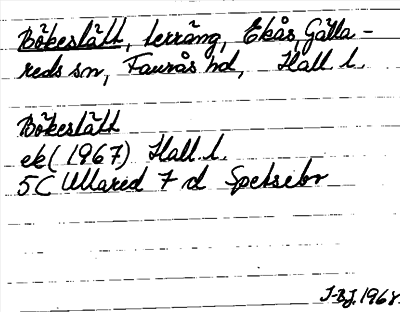 Bökeslätt, terräng, Ekås, Gälla-
reds sn, Faurås hd, Hall. l.
Bökeslätt
ek (1967) Hall. l.
5C Ullared 7 d
J-BJ. 1968.